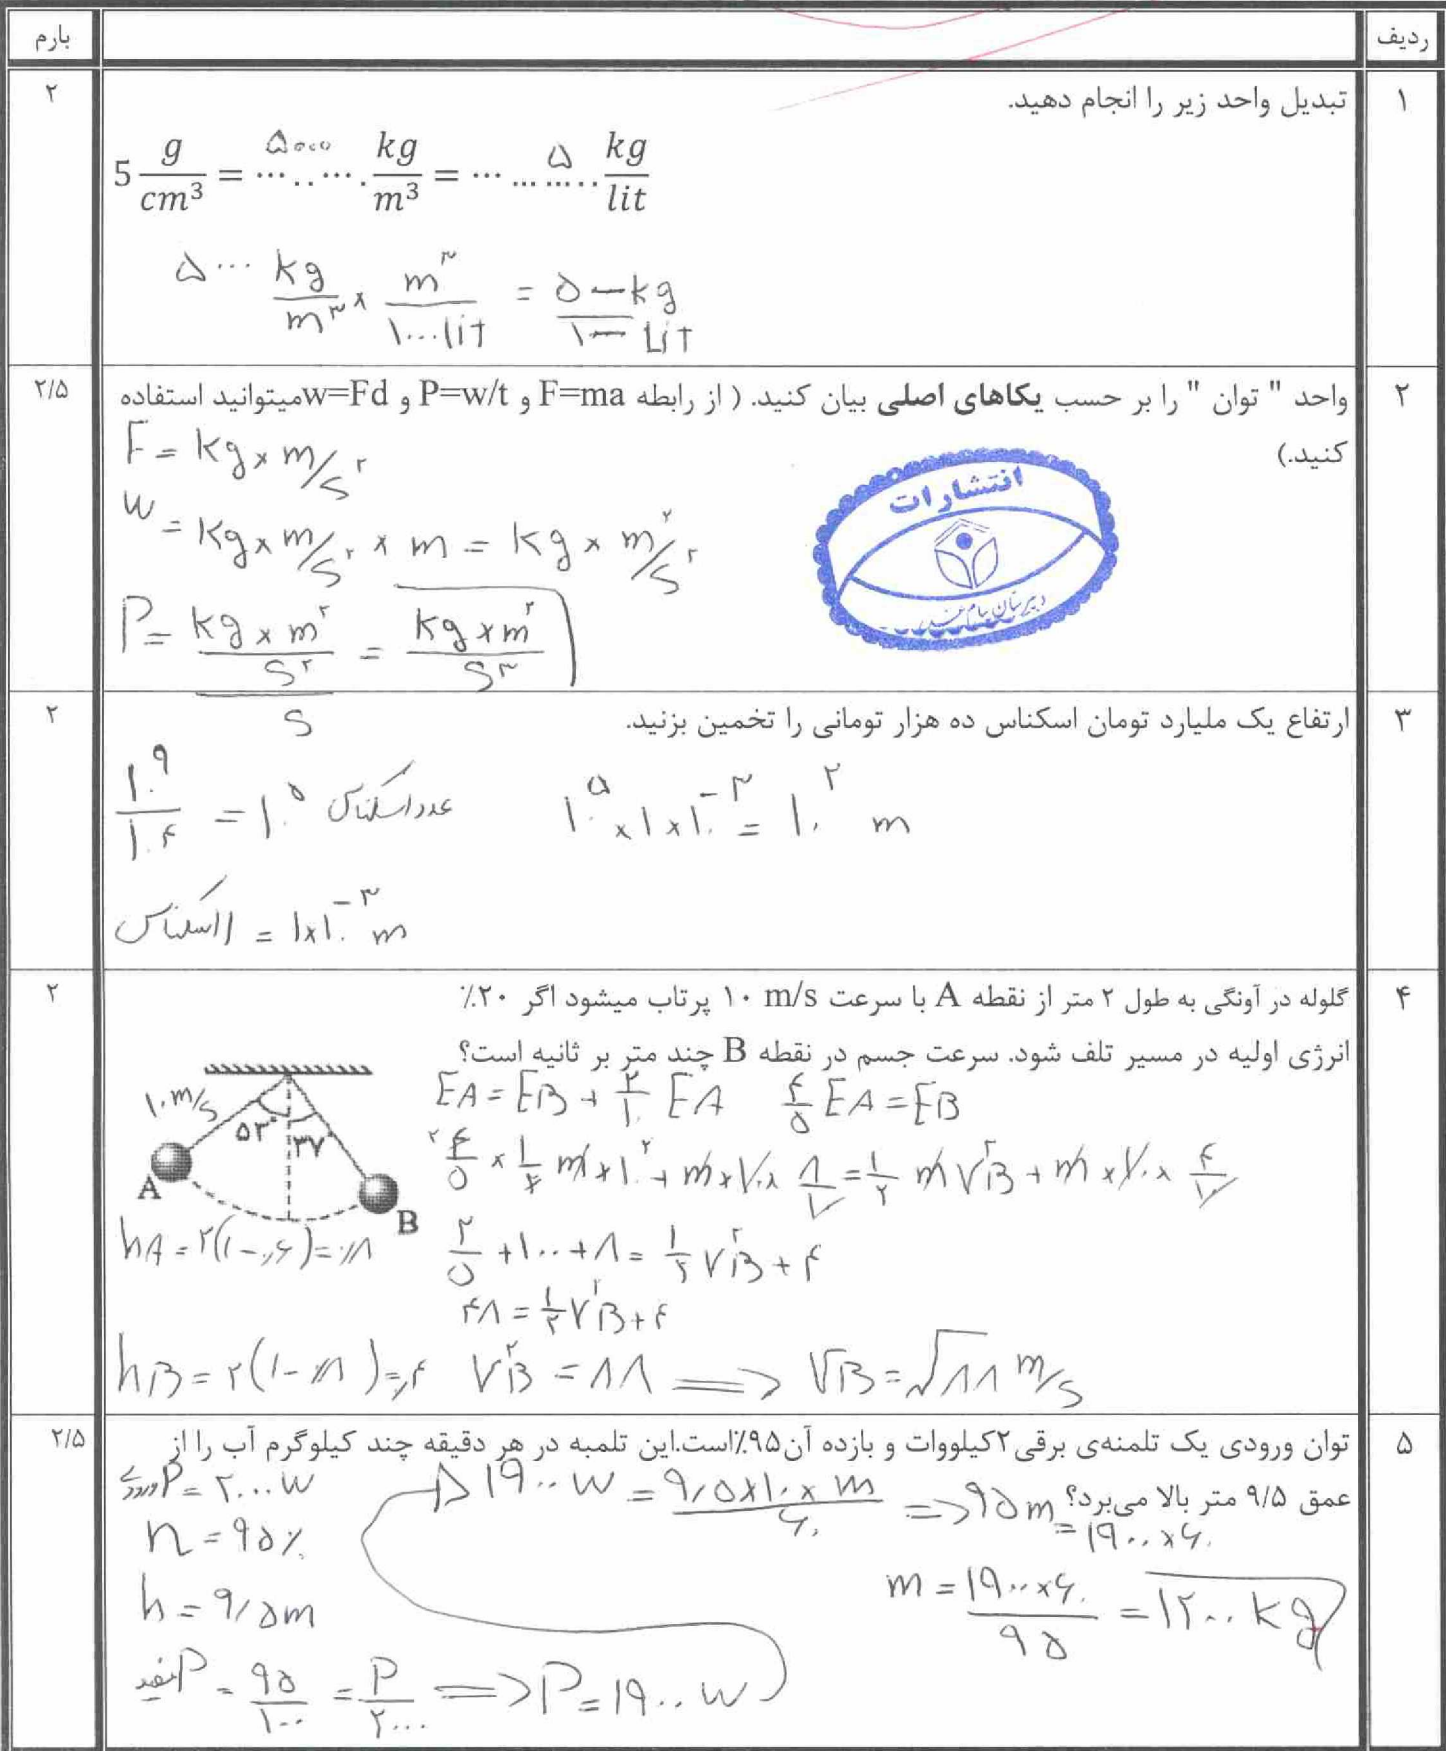 ردیف
بارم
۱
تبدیل واحد زیر را انجام دهید.
۲
5 g/cm³ = ....۵۰۰۰.... kg/m³ = ....۵.... kg/lit
۵۰۰۰ kg/m۳ × m۳/۱۰۰۰lit = ۵۰۰۰kg/۱۰۰۰ Lit
۲
واحد " توان " را بر حسب یکاهای اصلی بیان کنید. ( از رابطه F=ma و P=w/t و w=Fdمیتوانید استفاده
کنید.)
۲/۵
F = kg × m/s۲
W = kg × m/s۲ × m = kg × m۲/s۲
P = kg × m۲/s۲/s = kg × m۲/s۳
انتشارات
۳
ارتفاع یک ملیارد تومان اسکناس ده هزار تومانی را تخمین بزنید.
۲
۱۰۹/۱۰۴ = ۱۰۵ عدد اسکناس
۱۰۵ × ۱ × ۱۰-۳ = ۱۰۲ m
۱ اسکناس = ۱×۱۰-۳ m
۴
گلوله در آونگی به طول ۲ متر از نقطه A با سرعت ۱۰ m/s پرتاب میشود اگر ۲۰٪
انرژی اولیه در مسیر تلف شود. سرعت جسم در نقطه B چند متر بر ثانیه است؟
۲
۱۰m/s
۵۳°
۳۷°
A
B
EA = EB + ۲/۱۰ EA ۴/۵ EA = EB
۴/۵ × ۱/۲ m × ۱۰۲ + m × ۱۰ × ۸/۱۰ = ۱/۲ m VB۲ + m × ۱۰ × ۴/۱۰
hA = ۲(۱-۰٫۶) = ۰٫۸
۲/۵ + ۱۰۰ + ۸ = ۱/۲ VB۲ + ۴
۴۸ = ۱/۲ VB۲ + ۴
hB = ۲(۱-۰٫۸) = ۰٫۴
VB۲ = ۸۸ ⟹ VB = √۸۸ m/s
۵
توان ورودی یک تلمنه‌ی برقی ۲کیلووات و بازده آن ۹۵٪است.این تلمبه در هر دقیقه چند کیلوگرم آب را از
عمق ۹/۵ متر بالا می‌برد؟
۲/۵
P ورودی = ۲۰۰۰ W
n = ۹۵٪
h = ۹/۵m
P مفید = ۹۵/۱۰۰ = P/۲۰۰۰ ⟹ P = ۱۹۰۰ W
۱۹۰۰ W = ۹/۵×۱۰ × m/۶۰ ⟹ ۹۵m = ۱۹۰۰×۶۰
m = ۱۹۰۰×۶۰/۹۵ = ۱۲۰۰ kg